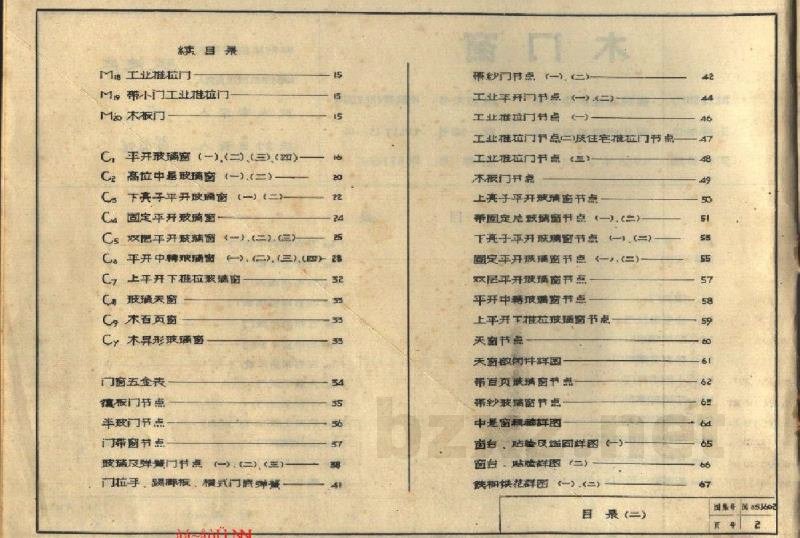 续 目 录
M18 工业推拉门 15
M19 带小门工业推拉门 15
M20 木板门 15
C1 平开玻璃窗 (一).(二).(三).(四) 16
C2 高位中悬玻璃窗 (一).(二) 20
C3 下亮子平开玻璃窗 (一) (二) 22
C4 固定平开玻璃窗 24
C5 双层平开玻璃窗 (一).(二).(三) 25
C6 平开中轉玻璃窗 (一).(二).(三).(四) 28
C7 上平开下推拉玻璃窗 32
C8 玻璃天窗 33
C9 木百页窗 33
CY 木异形玻璃窗 33
门窗五金表 34
镶板门节点 35
半玻门节点 36
门带窗节点 37
玻璃及弹簧门节点 (一).(二).(三) 38
门拉手．踢脚板． 41
带纱门节点 (一).(二) 42
工业平开门节点 (一).(二) 44
工业推拉门节点 (一) 46
工业推拉门节点(二)及住宅推拉门节点 47
工业推拉门节点 (三) 48
木板门节点 49
上亮子平开玻璃窗节点 50
带固定 玻璃窗节点 (一).(二) 51
下亮子平开玻璃窗节点 (一).(二) 53
固定平开玻璃窗节点 (一).(二) 55
双层平开玻璃窗节点 57
平开中轉玻璃窗节点 58
上平开下推拉玻璃窗节点 59
天窗节点 60
天窗 详图 61
带百页玻璃窗节点 62
带纱玻璃窗节点 63
中悬窗 详图 64
窗台．贴脸及 详图 (一) 65
窗台．贴脸详图 (二) 66
铁栅铁花详图 (一).(二) 67
目 录 (二)
图集号
页 号 2
木 门 窗